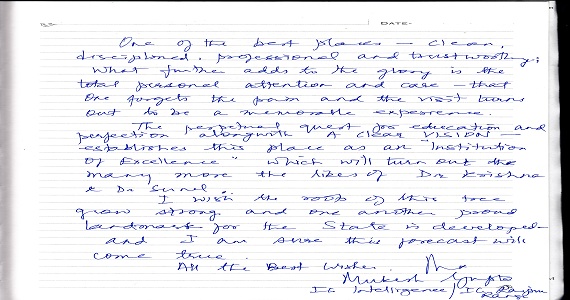 DATE-
One of the best places - clean,
disciplined, professional and trustworthy.
What further adds to the glory is the
total personal attention and care - that
one forgets the pain and the visit turns
out to be a memorable experience.
The perpetual quest for education and
perfection alongwith "A clear VISION" -
establishes this place as an "Institution
of Excellence" which will turn out the
many more the likes of Dr Krishna
& Dr Sunil.
I wish the roots of this tree
grow strong and one another proud
landmark for the State is developed
and I am sure this forecast will
come true.
All the Best Wishes.
Mukesh Gupta
IG Intelligence / IG Raipur
Range